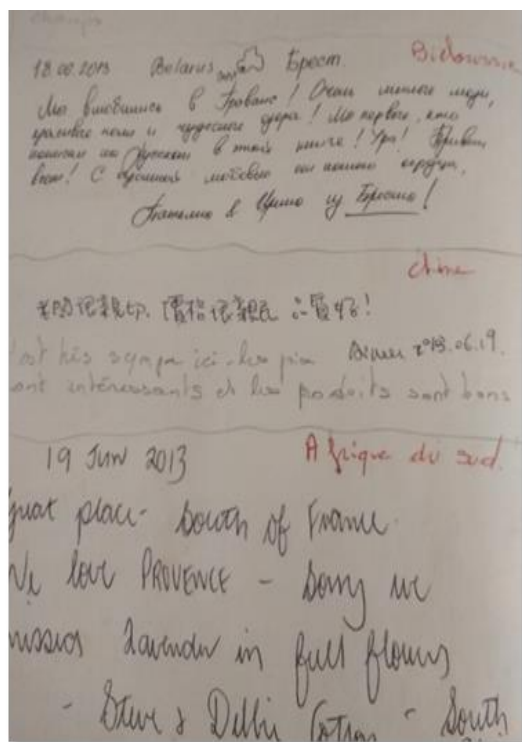 Champs
18.06.2013 Belarus Брест Biélorussie
Мы влюбились в Прованс! Очень милые люди,
красивые поля и чудесные озера! Мы первые, кто
написал на русском в этой книге! Ура! Привет
Брест! С огромной любовью от нашего сердца,
из Бреста!
Chine
老闆很親切, 價格很親民 品質好!
'est très sympa ici - les prix 2013.06.19.
ont intéressants et les produits sont bons
19 Jun 2013 Afrique du sud.
Great place - South of France.
We love PROVENCE - Sorry we
missed Lavender in full flowers
- Steve & Debbie - South